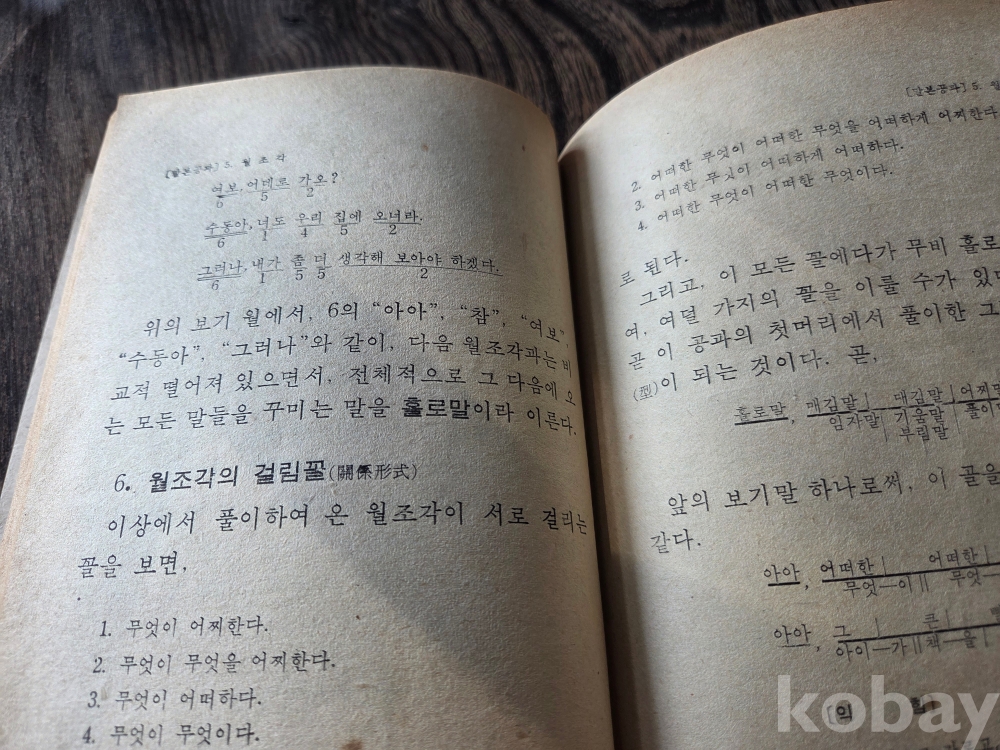 5. 월 조 각
여보, 어데로 가오?
6 5 2
수동아, 너도 우리 집에 오너라.
6 1 4 5 2
그러나, 내가 좀 더 생각해 보아야 하겠다.
6 1 5 5 2
위의 보기 월에서, 6의 “아아”, “참”, “여보”,
“수동아”, “그러나”와 같이, 다음 월조각과는 비
교적 떨어져 있으면서, 전체적으로 그 다음에 오
는 모든 말들을 꾸미는 말을 홀로말이라 이른다.
6. 월조각의 걸림꼴(關係形式)
이상에서 풀이하여 온 월조각이 서로 걸리는
꼴을 보면,
1. 무엇이 어찌한다.
2. 무엇이 무엇을 어찌한다.
3. 무엇이 어떠하다.
4. 무엇이 무엇이다.
5. 월
2. 어떠한 무엇이 어떠한 무엇을 어떠하게 어찌한다.
3. 어떠한 무엇이 어떠하게 어떠하다.
4. 어떠한 무엇이 어떠한 무엇이다.
로 된다.
그리고, 이 모든 꼴에다가 무비 홀로
여, 여덟 가지의 꼴을 이룰 수가 있
곧 이 공과의 첫머리에서 풀이한 그
(型)이 되는 것이다. 곧,
홀로말, 매김말 매김말 어찌
임자말 기움말 풀이
부림말
앞의 보기말 하나로써, 이 골을
같다.
아아, 어떠한 어떠한
무엇—이 무엇—
아아, 그 큰
아이—가 책—을
[익 힘]
kobay